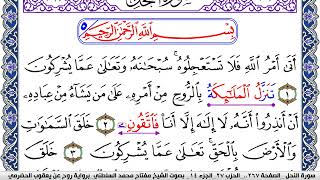 بِسْمِ اللَّهِ الرَّحْمَٰنِ الرَّحِيمِ
أَتَىٰ أَمْرُ اللَّهِ فَلَا تَسْتَعْجِلُوهُ ۚ سُبْحَانَهُ وَتَعَالَىٰ عَمَّا يُشْرِكُونَ
١ تَنَزَّلُ الْمَلَٰٓئِكَةُ بِالرُّوحِ مِنْ أَمْرِهِ عَلَىٰ مَن يَشَاءُ مِنْ عِبَادِهِ
أَنْ أَنذِرُوا أَنَّهُ لَا إِلَٰهَ إِلَّا أَنَا فَاتَّقُونِۦ ٢ خَلَقَ السَّمَاوَاتِ
وَالْأَرْضَ بِالْحَقِّ تَعَالَىٰ عَمَّا يُشْرِكُونَ ٣ خَلَقَ
سورة النحل الصفحة ٢٦٧ الحزب ٢٧ الجزء ١٤ بصوت الشيخ مفتاح محمد السلطني برواية روح عن يعقوب الحضرمي